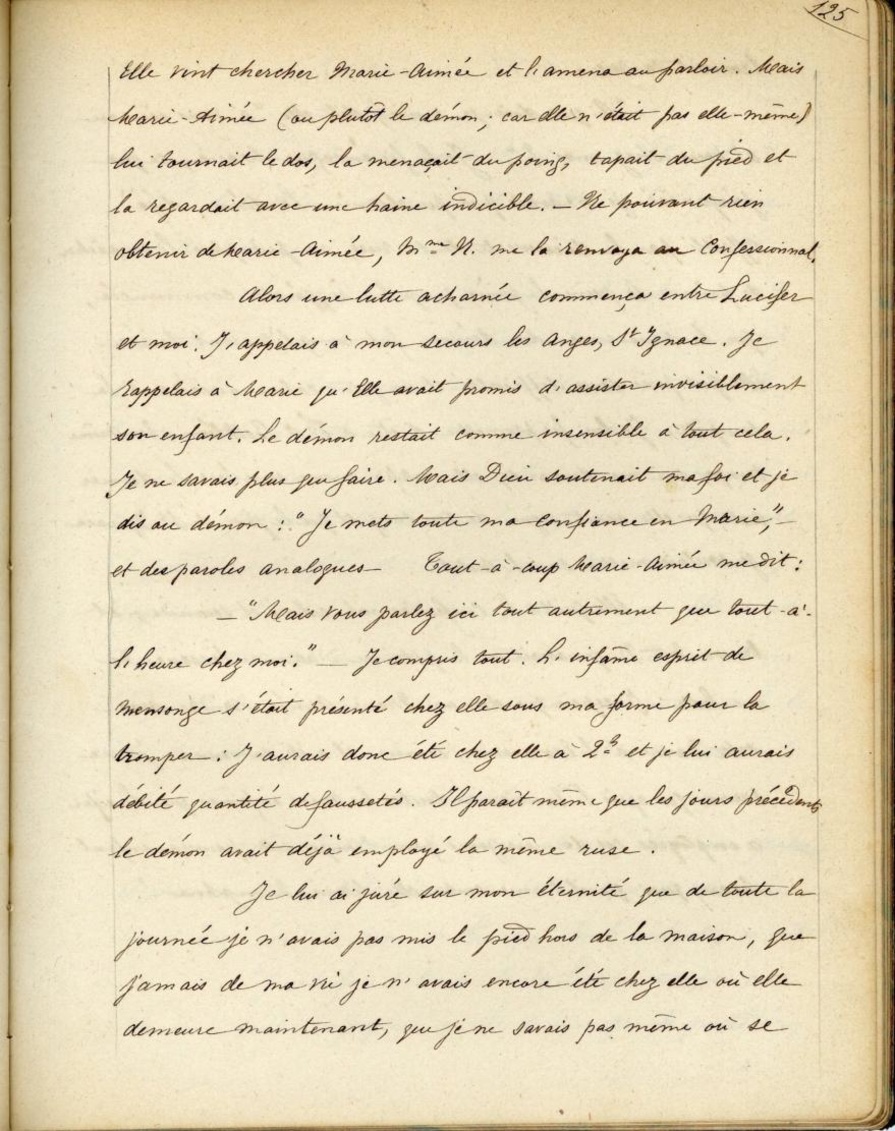 125
Elle vint chercher Marie-Aimée et l'amena au parloir. Mais
Marie-Aimée (ou plutôt le démon; car elle n'était pas elle-même)
lui tournait le dos, la menaçait du poing, tapait du pied et
la regardait avec une haine indicible. — Ne pouvant rien
obtenir de Marie-Aimée, Mme N. me la renvoya au Confessionnal.
Alors une lutte acharnée commença entre Lucifer
et moi. J'appelais à mon secours les Anges, St Ignace. Je
rappelais à Marie qu'Elle avait promis d'assister invisiblement
son enfant. Le démon restait comme insensible à tout cela.
Je ne savais plus que faire. Mais Dieu soutenait ma foi et je
dis au démon : "Je mets toute ma confiance en Marie", —
et des paroles analogues — Tout-à-coup Marie-Aimée me dit :
— "Mais vous parlez ici tout autrement que tout-à-
l'heure chez moi." — Je compris tout. L'infâme esprit de
mensonge s'était présenté chez elle sous ma forme pour la
tromper : J'aurais donc été chez elle à 2h et je lui aurais
débité quantité de faussetés. Il paraît même que les jours précédents
le démon avait déjà employé la même ruse.
Je lui ai juré sur mon éternité que de toute la
journée je n'avais pas mis le pied hors de la maison, que
jamais de ma vie je n'avais encore été chez elle où elle
demeure maintenant, que je ne savais pas même où se